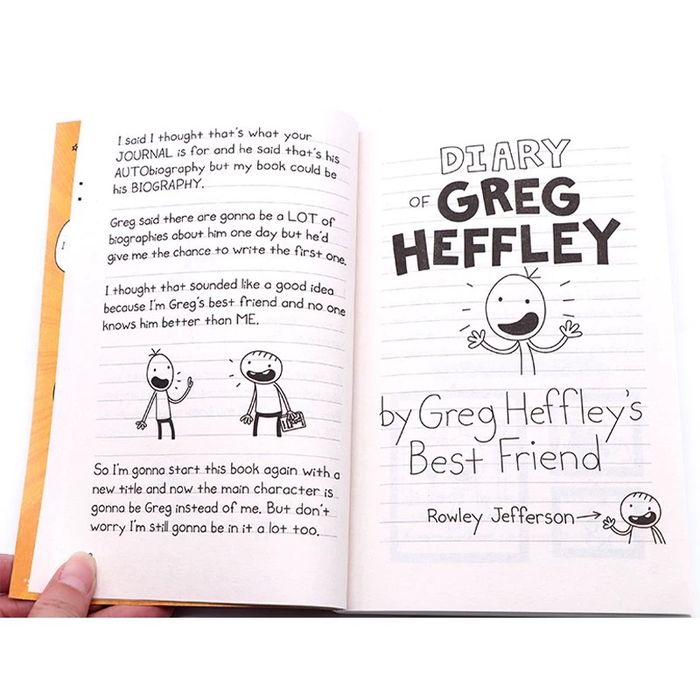 I said I thought that's what your
JOURNAL is for and he said that's his
AUTObiography but my book could be
his BIOGRAPHY.
Greg said there are gonna be a LOT of
biographies about him one day but he'd
give me the chance to write the first one.
I thought that sounded like a good idea
because I'm Greg's best friend and no one
knows him better than ME.
So I'm gonna start this book again with a
new title and now the main character is
gonna be Greg instead of me. But don't
worry I'm still gonna be in it a lot too.
DIARY
OF GREG
HEFFLEY
by Greg Heffley's
Best Friend
Rowley Jefferson